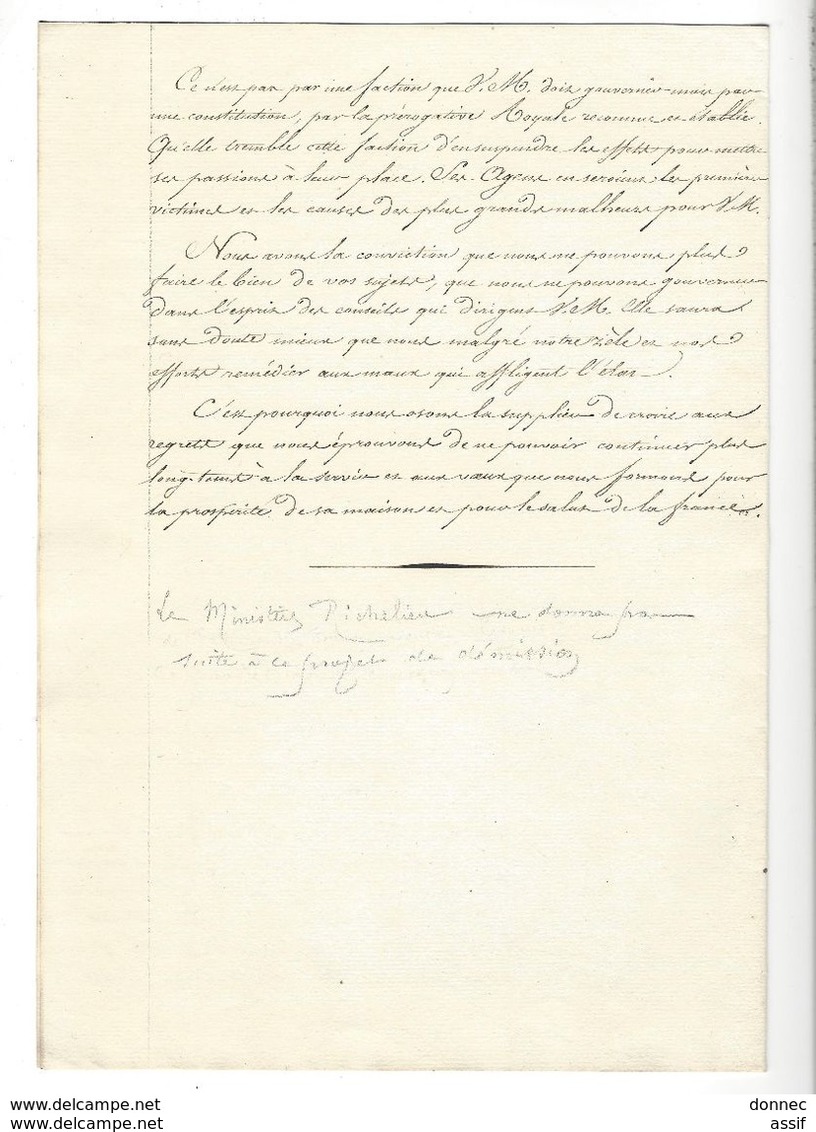 Ce n'est pas par une faction que V. M. doit gouverner mais par
une constitution, par la prérogative Royale reconnue et établie.
Qu'elle tremble cette faction d'en suspendre les effets pour mettre
ses passions à leur place. Ses Agens en seroient les premières
victimes et les causes des plus grands malheurs pour V. M.
Nous avons la conviction que nous ne pouvons plus
faire le bien de vos sujets, que nous ne pouvons gouverner
dans l'esprit des conseils qui dirigent V. M. Elle saura
sans doute mieux que nous malgré notre zèle et nos
efforts remédier aux maux qui affligent l'état.
C'est pourquoi nous osons la supplier de croire aux
regrets que nous éprouvons de ne pouvoir continuer plus
long-tems à la servir et aux vœux que nous formons pour
la prospérité de sa maison et pour le salut de la france.
Le Ministère Richelieu ne donna pas
suite à ce projet de démission
You may also like more items
You may also like more items
donnec
assif